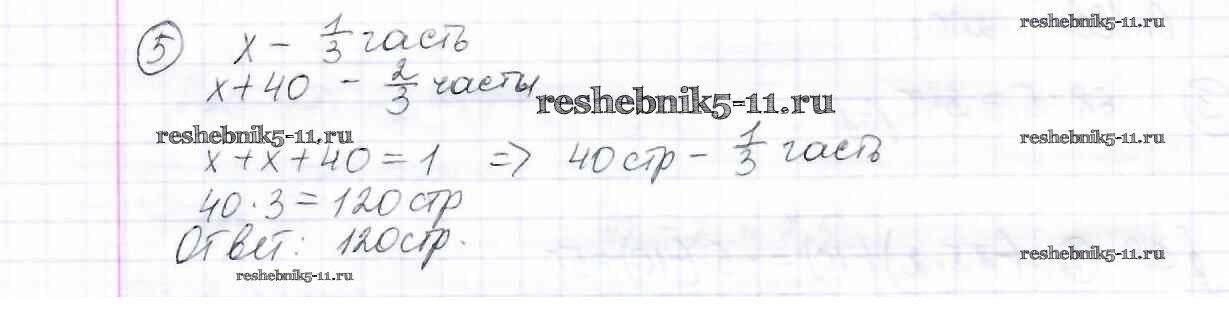 reshebnik5-11.ru
5 x - 1/3 часть
x + 40 - 2/3 часты
reshebnik5-11.ru
reshebnik5-11.ru
reshebnik5-11.ru
x + x + 40 = 1 => 40 стр - 1/3 часть
40 · 3 = 120 стр
Ответ: 120 стр.
reshebnik5-11.ru
reshebnik5-11.ru